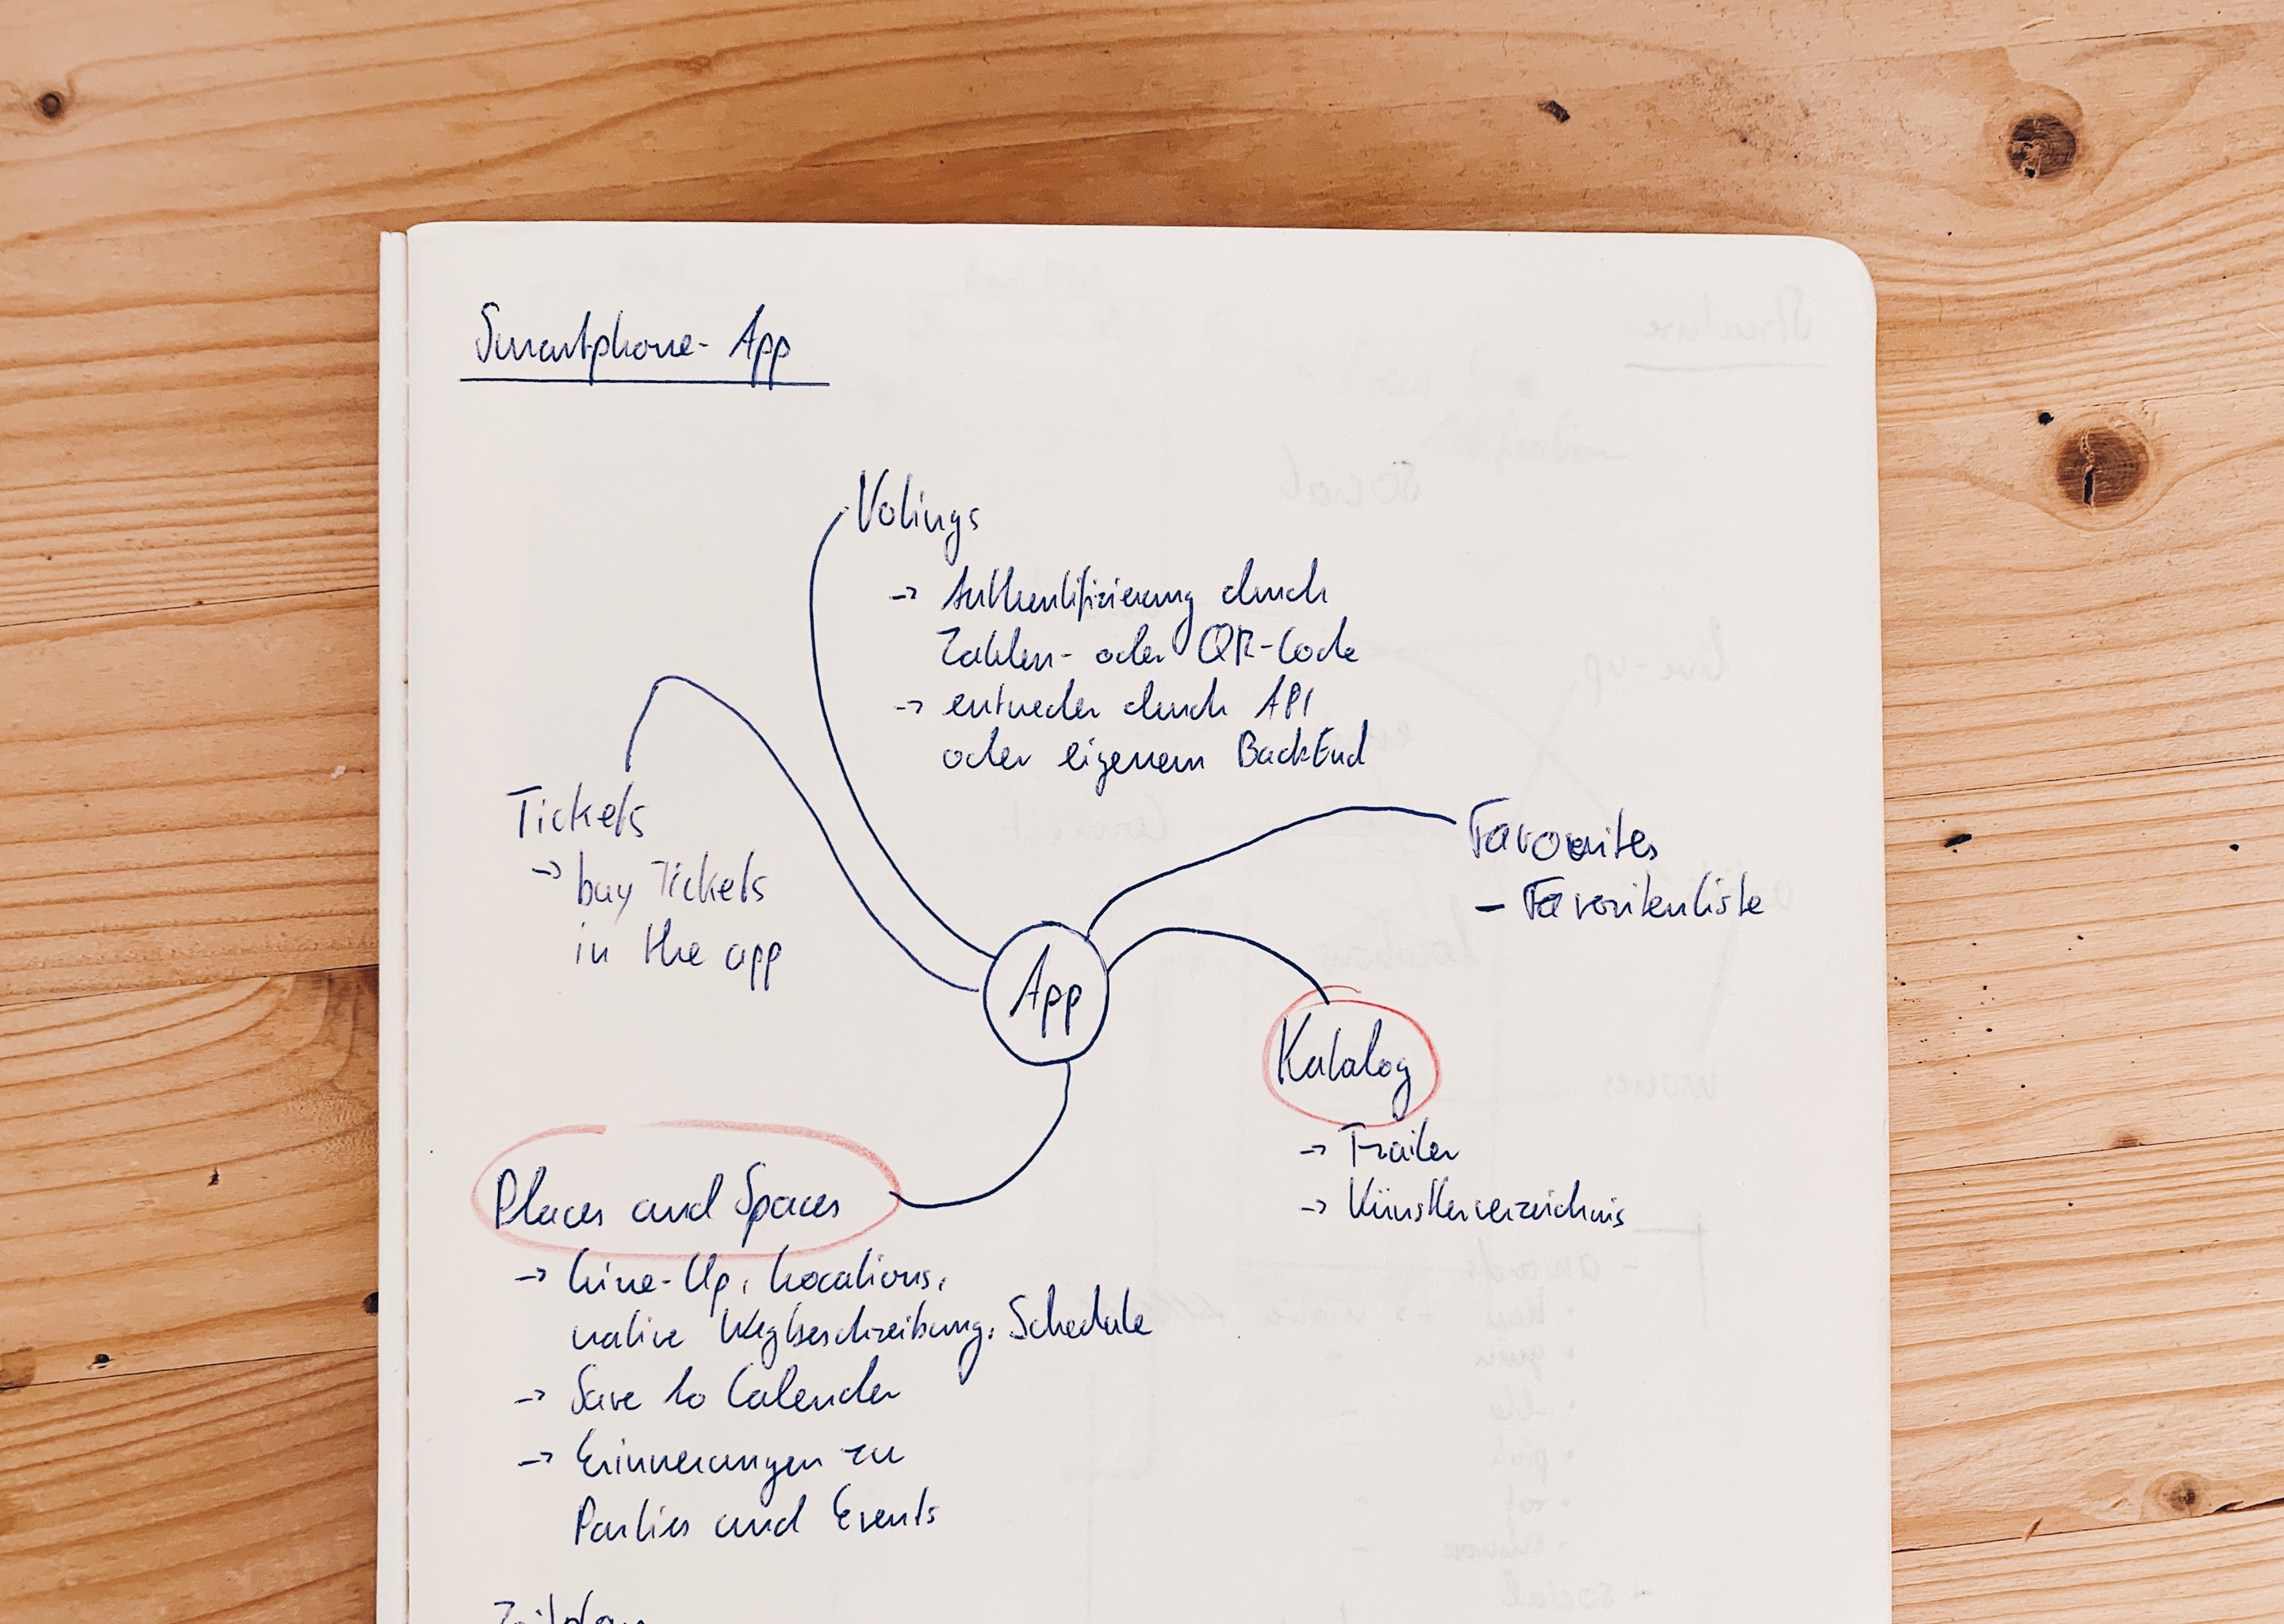 Smartphone-App
Votings
-> Authentifizierung durch
Zahlen- oder QR-Code
-> entweder durch API
oder eigenem BackEnd
Tickets
-> buy Tickets
in the app
Favourites
- Favoritenliste
App
Katalog
-> Trailer
-> Künstlerverzeichnis
Places and Spaces
-> Line-Up, Locations,
native Wegbeschreibung, Schedule
-> Save to Calender
-> Erinnerungen zu
Parties and Events
Zeitplan